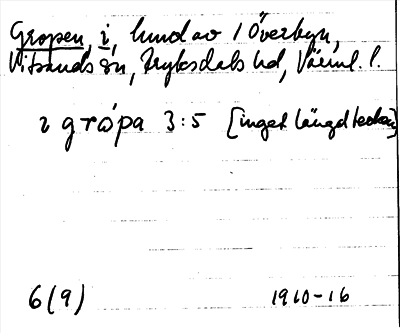 Gropen, i, hund av 1 Överbyn,
Vitsands sn, Fryksdals hd, Värml. l.
i grópa 3:5 [inget längdtecken]
6(9) 1910-16